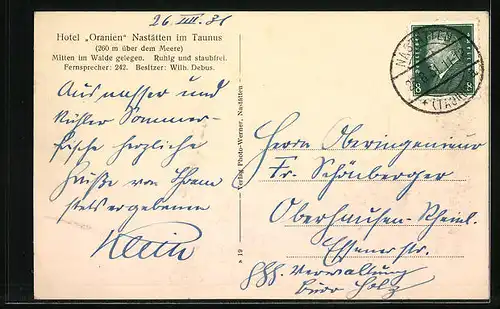 26. VIII. 31
Hotel „Oranien“ Nastätten im Taunus
(260 m über dem Meere)
Mitten im Walde gelegen. Ruhig und staubfrei.
Fernsprecher: 242. Besitzer: Wilh. Debus.
Aus nasser und
kühler Sommer-
frische herzliche
Grüße von Ihrem
stets ergebenen
Klein
Verlag Photo-Werner, Nastätten
NASTÄTTEN
(TAUNUS)
8 8
Herrn Oberingenieur
Fr. Schönberger
Oberhausen-Rheinl.
Essener str.
Verwaltung